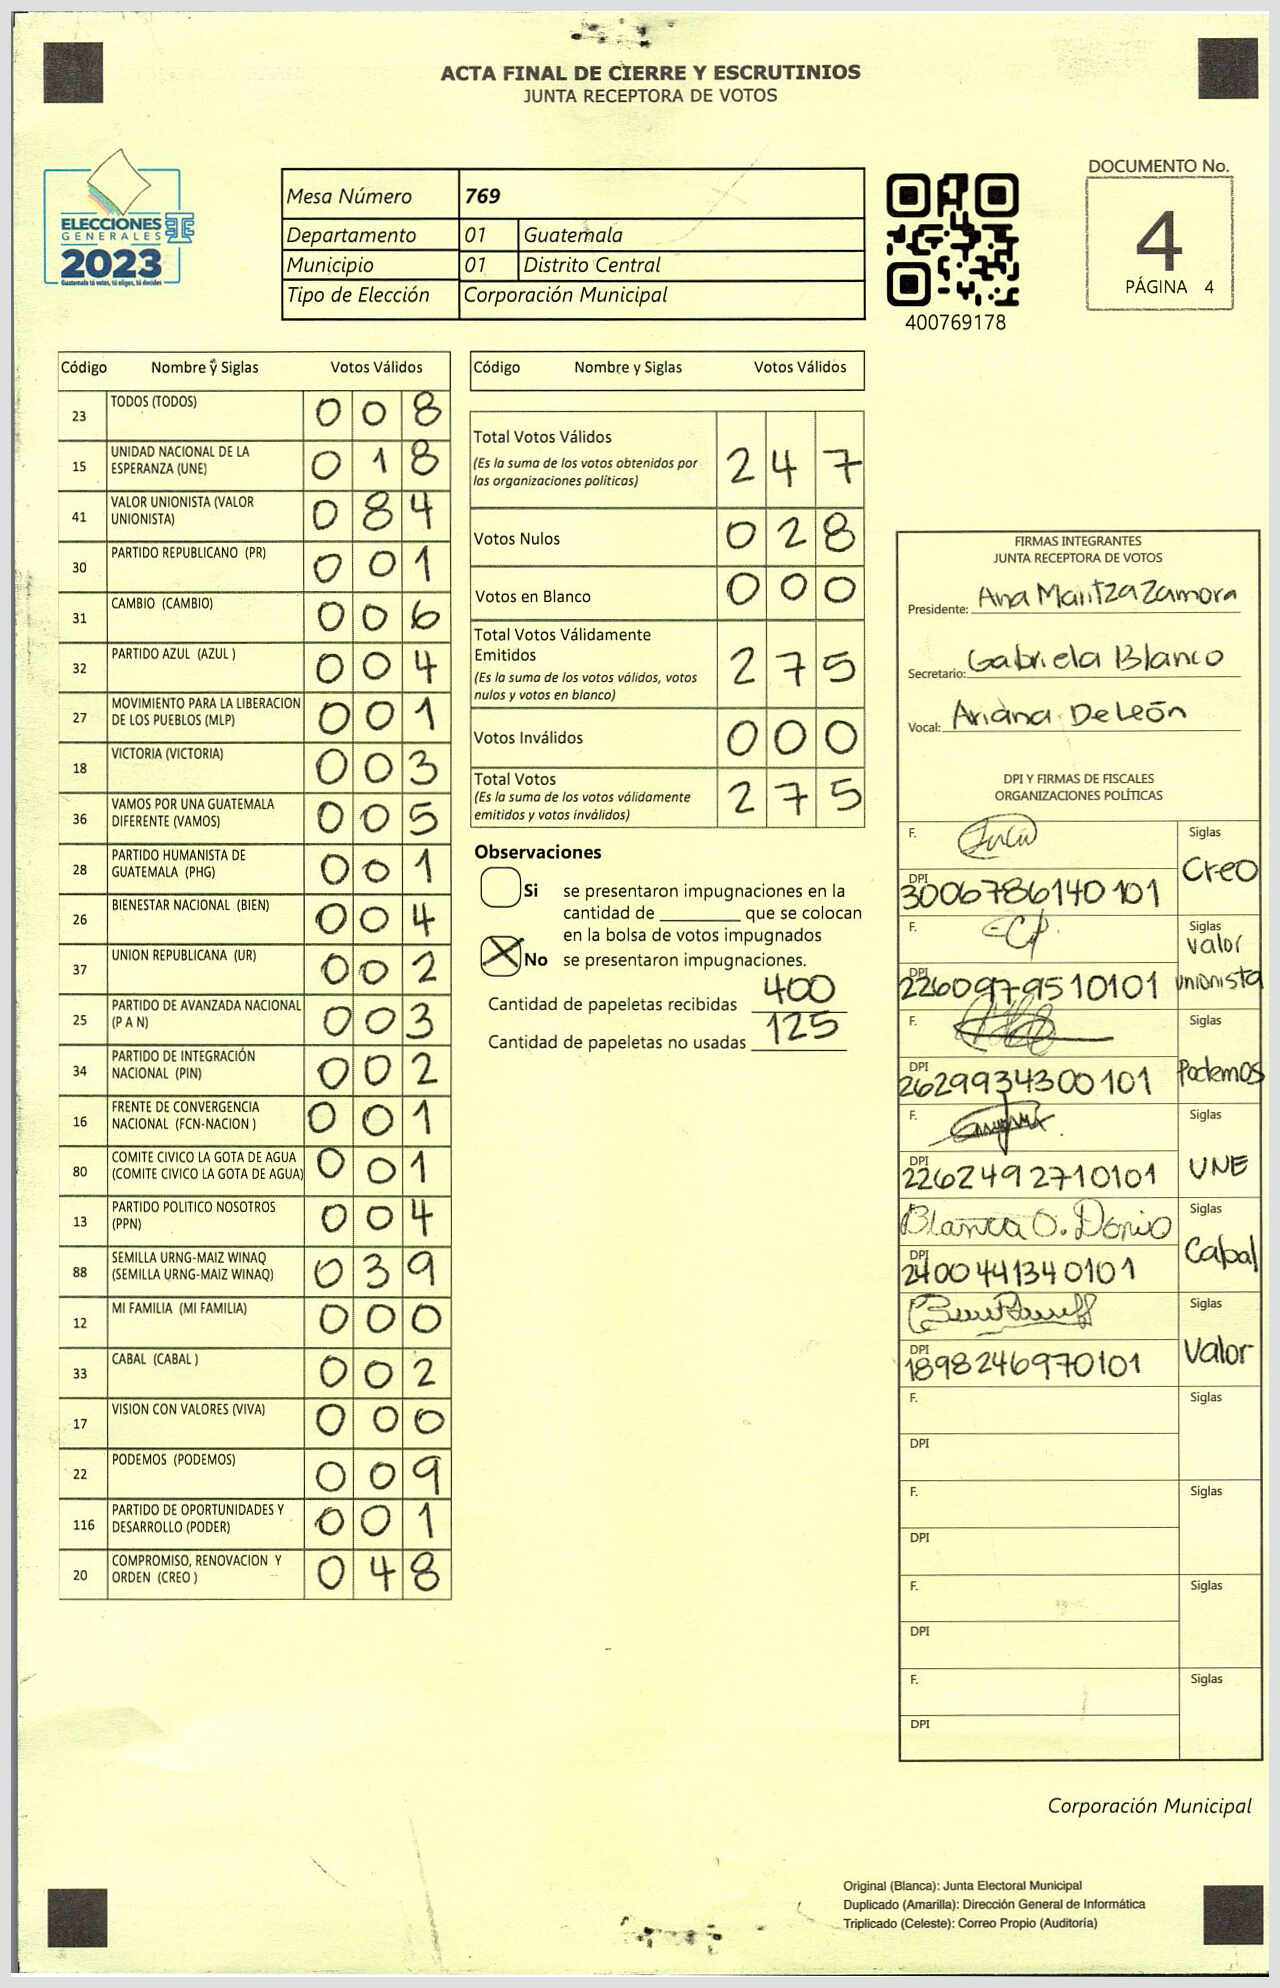 ACTA FINAL DE CIERRE Y ESCRUTINIOS
JUNTA RECEPTORA DE VOTOS
ELECCIONES
GENERALES
2023
Guatemala tú votas, tú eliges, tú decides
Mesa Número 769
Departamento 01 Guatemala
Municipio 01 Distrito Central
Tipo de Elección Corporación Municipal
400769178
DOCUMENTO No.
4
PÁGINA 4
Código Nombre y Siglas Votos Válidos
23 TODOS (TODOS) 0 0 8
15 UNIDAD NACIONAL DE LA
ESPERANZA (UNE) 0 1 8
41 VALOR UNIONISTA (VALOR
UNIONISTA) 0 8 4
30 PARTIDO REPUBLICANO (PR) 0 0 1
31 CAMBIO (CAMBIO) 0 0 6
32 PARTIDO AZUL (AZUL ) 0 0 4
27 MOVIMIENTO PARA LA LIBERACION
DE LOS PUEBLOS (MLP) 0 0 1
18 VICTORIA (VICTORIA) 0 0 3
36 VAMOS POR UNA GUATEMALA
DIFERENTE (VAMOS) 0 0 5
28 PARTIDO HUMANISTA DE
GUATEMALA (PHG) 0 0 1
26 BIENESTAR NACIONAL (BIEN) 0 0 4
37 UNION REPUBLICANA (UR) 0 0 2
25 PARTIDO DE AVANZADA NACIONAL
(P A N) 0 0 3
34 PARTIDO DE INTEGRACIÓN
NACIONAL (PIN) 0 0 2
16 FRENTE DE CONVERGENCIA
NACIONAL (FCN-NACION ) 0 0 1
80 COMITE CIVICO LA GOTA DE AGUA
(COMITE CIVICO LA GOTA DE AGUA) 0 0 1
13 PARTIDO POLITICO NOSOTROS
(PPN) 0 0 4
88 SEMILLA URNG-MAIZ WINAQ
(SEMILLA URNG-MAIZ WINAQ) 0 3 9
12 MI FAMILIA (MI FAMILIA) 0 0 0
33 CABAL (CABAL ) 0 0 2
17 VISION CON VALORES (VIVA) 0 0 0
22 PODEMOS (PODEMOS) 0 0 9
116 PARTIDO DE OPORTUNIDADES Y
DESARROLLO (PODER) 0 0 1
20 COMPROMISO, RENOVACION Y
ORDEN (CREO ) 0 4 8
Código Nombre y Siglas Votos Válidos
Total Votos Válidos
(Es la suma de los votos obtenidos por
las organizaciones políticas) 2 4 7
Votos Nulos 0 2 8
Votos en Blanco 0 0 0
Total Votos Válidamente
Emitidos
(Es la suma de los votos válidos, votos
nulos y votos en blanco) 2 7 5
Votos Inválidos 0 0 0
Total Votos
(Es la suma de los votos válidamente
emitidos y votos inválidos) 2 7 5
Observaciones
Si se presentaron impugnaciones en la
cantidad de ________ que se colocan
en la bolsa de votos impugnados
No se presentaron impugnaciones.
Cantidad de papeletas recibidas 400
Cantidad de papeletas no usadas 125
FIRMAS INTEGRANTES
JUNTA RECEPTORA DE VOTOS
Presidente: Ana Maritza Zamora
Secretario: Gabriela Blanco
Vocal: Ariana De León
DPI Y FIRMAS DE FISCALES
ORGANIZACIONES POLÍTICAS
F. Siglas
Creo
DPI
3006786140101
F. Siglas
Valor
Unionista
DPI
2260979510101
F. Siglas
Podemos
DPI
2629934300101
F. Siglas
UNE
DPI
2262492710101
Blanca O. Siglas
Cabal
DPI
2400441340101
Siglas
Valor
DPI
1898246970101
F. Siglas
DPI
F. Siglas
DPI
F. Siglas
DPI
F. Siglas
DPI
Corporación Municipal
Original (Blanca): Junta Electoral Municipal
Duplicado (Amarilla): Dirección General de Informática
Triplicado (Celeste): Correo Propio (Auditoría)